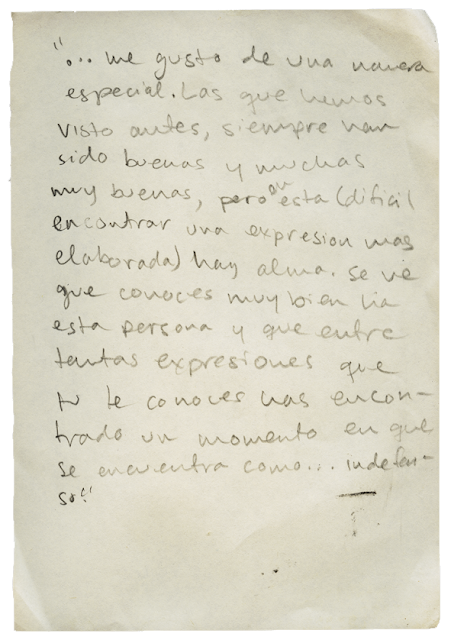 "... me gusto de una manera
especial. Las que hemos
visto antes, siempre han
sido buenas y muchas
muy buenas, pero en esta (dificil
encontrar una expresion mas
elaborada) hay alma. Se ve
que conoces muy bien ha
esta persona y que entre
tantas expresiones que
tu le conoces has encon-
trado un momento en que
se encuentra como... indefen-
so"